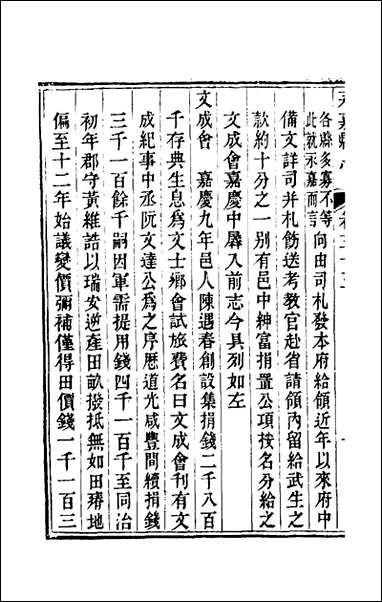 各縣多寡不等
此就永嘉而言
向由司札發本府給領近年以來府中
備文詳司并札飭送考教官赴省請領內留給武生之
款約十分之一別有邑中紳富捐置公項按名分給之
文成會嘉慶中羼入前志今具列如左
文成會　嘉慶九年邑人陳遇春創設集捐錢二千八百
千存典生息為文士鄉會試旅費名曰文成會刊有文
成紀事中丞阮文達公為之序歷道光咸豐間續捐錢
三千一百餘千嗣因軍需提用錢四千一百千至同治
初年郡守黃維誥以瑞安逆產田畝撥抵無如田瘠地
偏至十二年始議變價彌補僅得田價錢一千一百三